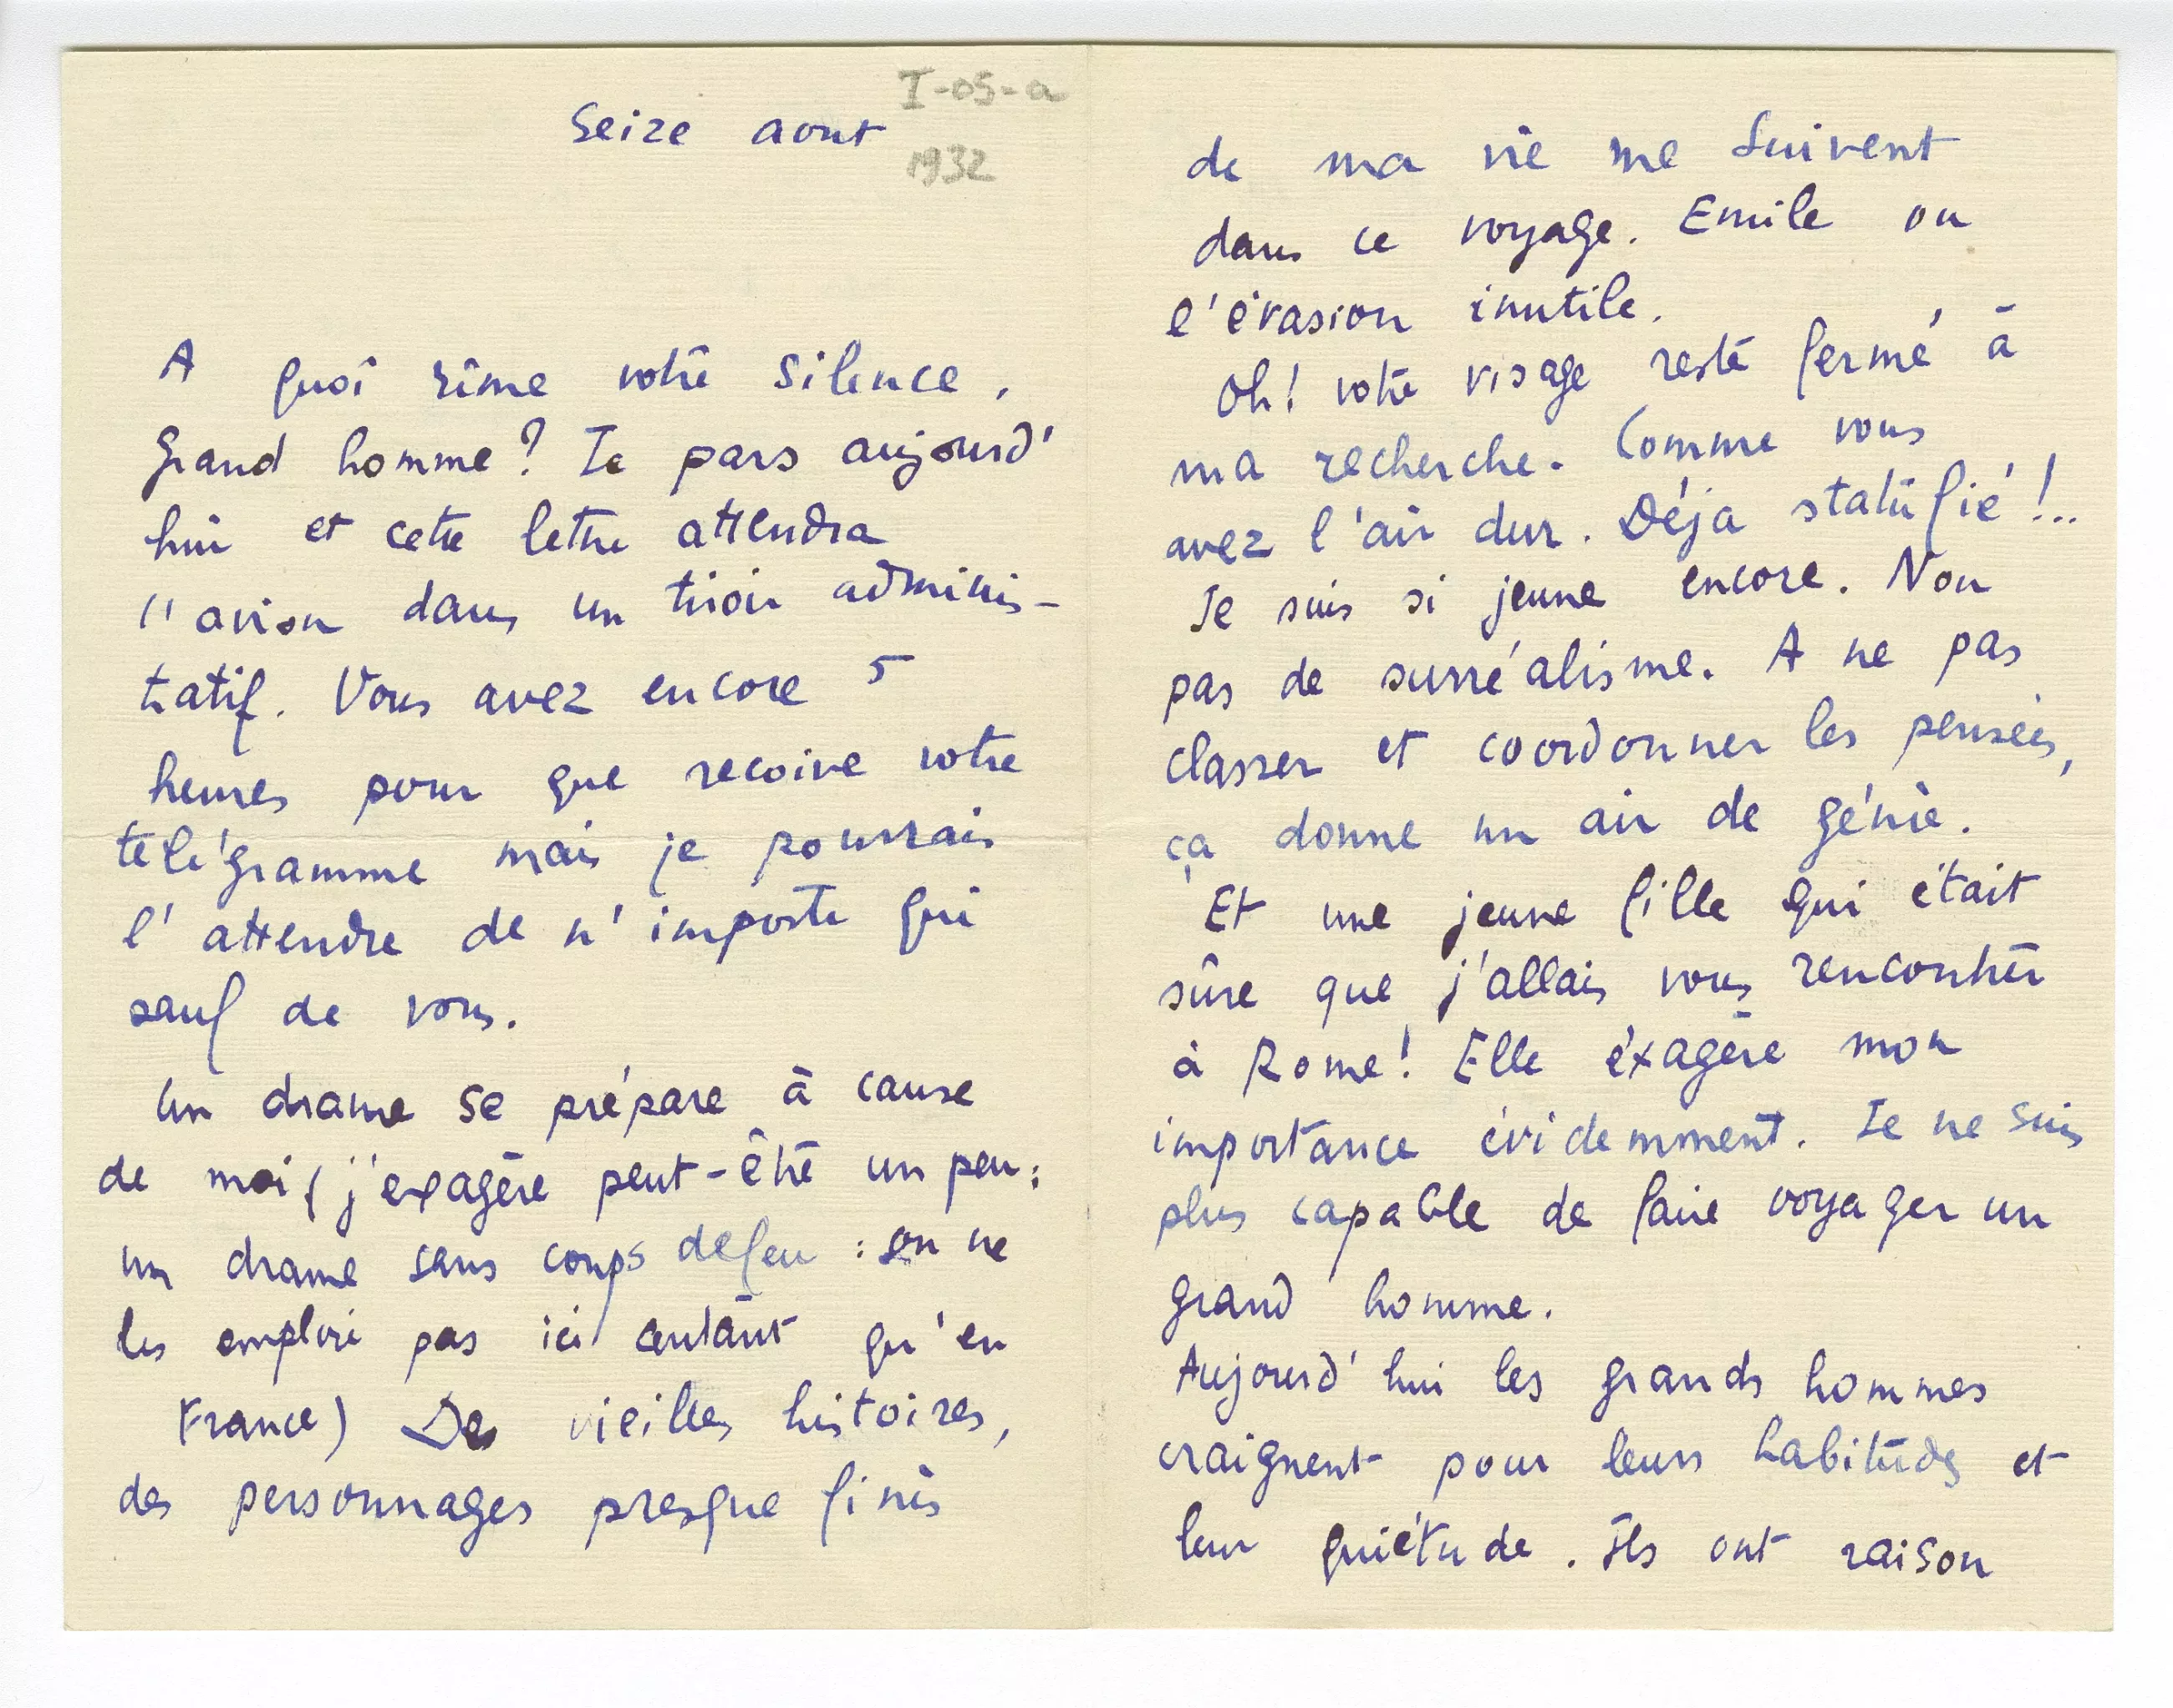 I-05-a
Seize aout
1932
A quoi rime votre silence,
Grand homme? Je pars aujourd'
hui et cette lettre attendra
l'avion dans un tiroir adminis-
tratif. Vous avez encore 5
heures pour que recoive votre
télégramme mais je pourrais
l'attendre de n'importe qui
sauf de vous.
Un drame se prépare à cause
de moi (j'exagère peut-être un peu:
un drame sans coups de feu : on ne
les emploie pas ici autant qu'en
France) Des vieilles histoires,
des personnages presque finis
de ma vie me suivent
dans ce voyage. Emile ou
l'évasion inutile.
Oh! votre visage reste fermé à
ma recherche. Comme vous
avez l'air dur. Déja statufié!..
Je suis si jeune encore. Non
pas de surréalisme. A ne pas
classer et coordonner les pensées,
ça donne un air de génie.
Et une jeune fille qui était
sûre que j'allais vous rencontrer
à Rome! Elle éxagère mon
importance évidemment. Je ne suis
plus capable de faire voyager un
grand homme.
Aujourd'hui les grands hommes
craignent pour leurs habitudes et
leur quiétude. Ils ont raison